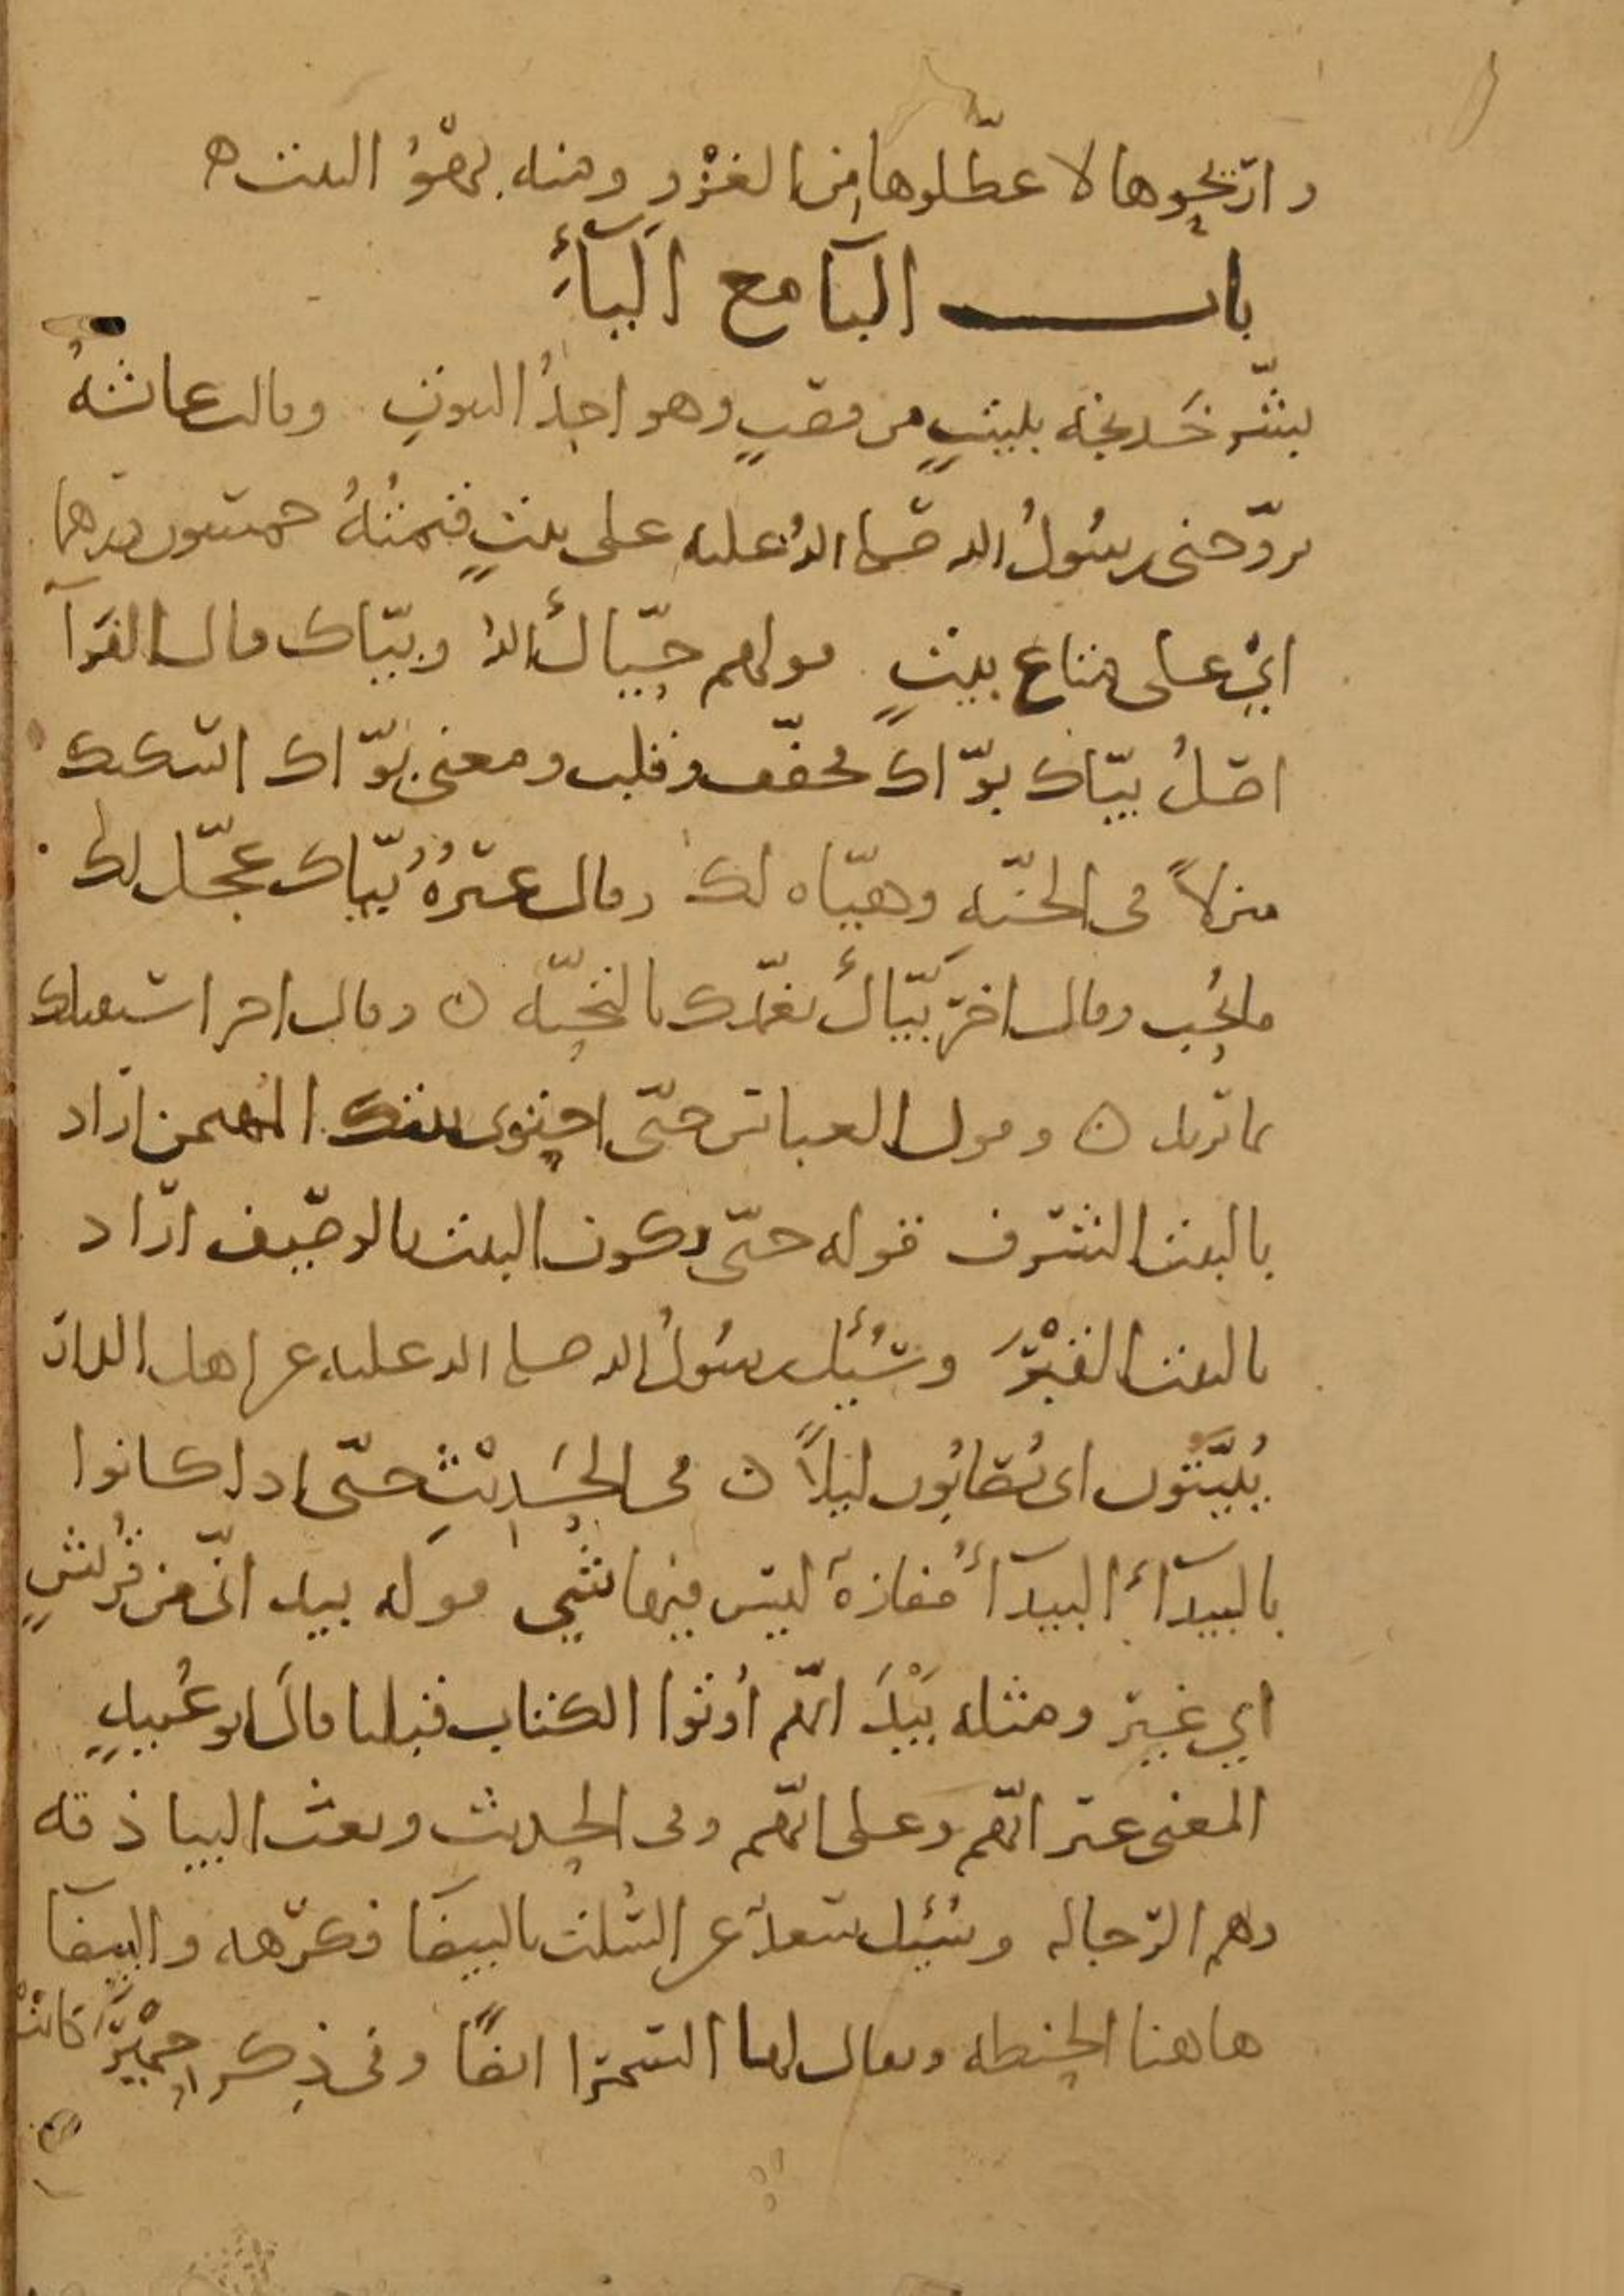 واريحوها لا عطلوها من الغزو ومنه بهو البيت ه
باب البا مع الياء
بشر خديجة ببيت من قصب وهو احد البيوت وقالت عائشة
تزوجني رسول الله صلى الله عليه على بيت قيمته خمسون درهما
اي على متاع بيت قولهم حياك الله وبياك قال الفرآ
اصل بياك بوّاك فخفف وقلب ومعنى بوّاك اسكنك
منزلاً في الجنة وهيّاه لك وقال غيره بياك عجل لك
ما تحب وقال اخر بياك تغمدك بالتحية ن وقال اخر اعتمدك
بما تريد ن وقول العباس حتى احتوى بيتك المهيمن اراد
بالبيت الشرف قوله حتى يكون البيت بالوصيف اراد
بالبيت القبر وسئل رسول الله صلى الله عليه عن اهل الدار
يُبيّتون اي يُصابون ليلاً ن في الحديث حتى اذا كانوا
بالبيدآء البيدآء مفازة ليس فيها شي قوله بيد اني من قريشٍ
اي غير ومثله بَيْدَ انهم اُوتوا الكتاب قبلنا قال ابو عُبيدٍ
المعنى غير انهم وعلى انهم وفي الحديث وبعث البياذقه
وهم الرجاله وسئل سعد عن السلت بالبيضا فكرهه والبيضا
هاهنا الحنطه ويقال لها السمرا ايضًا وفي ذكر حِمْيَر كانت